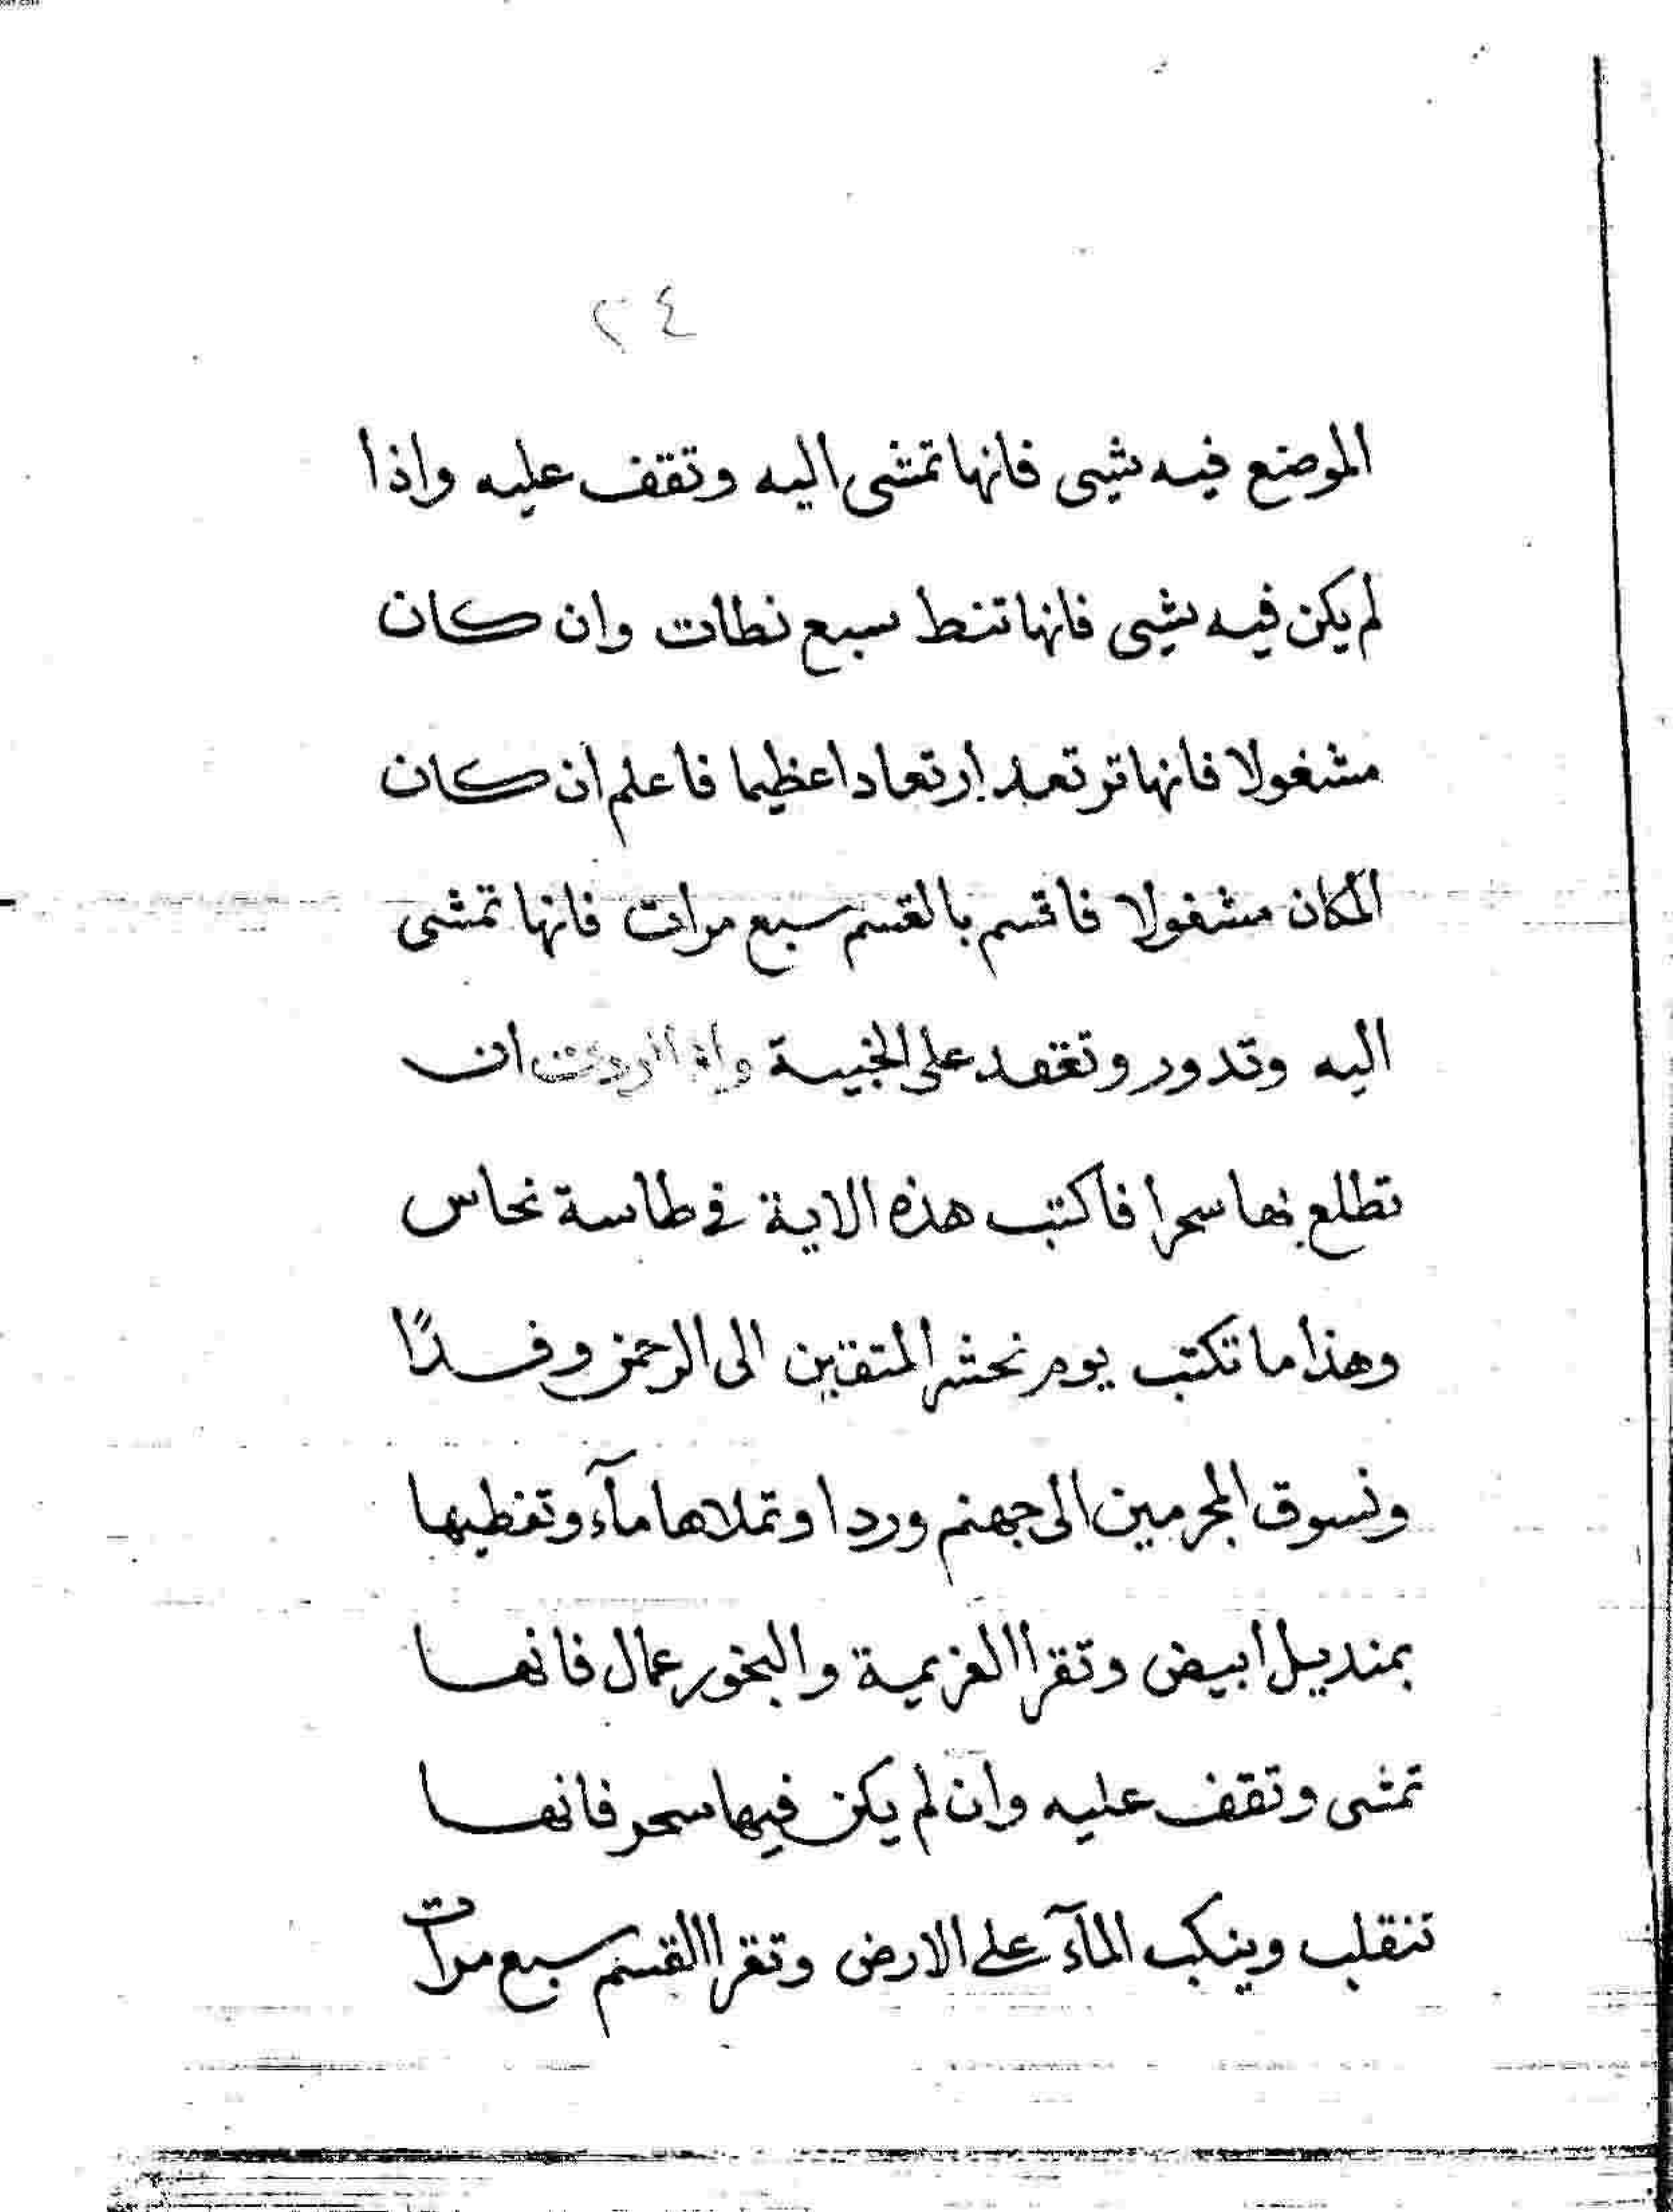 ٢٤
الموضع فيه شيى فانها تمشى اليه وتقف عليه واذا
لم يكن فيه شيى فانها تنط سبع نطات وان كان
مشغولا فانها ترتعد ارتعادا عظيما فاعلم ان كان
المكان مشغولا فاقسم بالقسم سبع مرات فانها تمشى
اليه وتدور وتقعد على الخبية واذا اردت ان
تطلع بها سحرا فاكتب هذه الاية في طاسة نحاس
وهذا ما تكتب يوم نحشر المتقين الى الرحمن وفدًا
ونسوق المجرمين الى جهنم وردا وتملاها مآء وتغطيها
بمنديل ابيض وتقرا العزيمة والبخور عمال فانها
تمشى وتقف عليه وان لم يكن فيها سحر فانها
تنقلب وينكب المآء على الارض وتقرا القسم سبع مرات